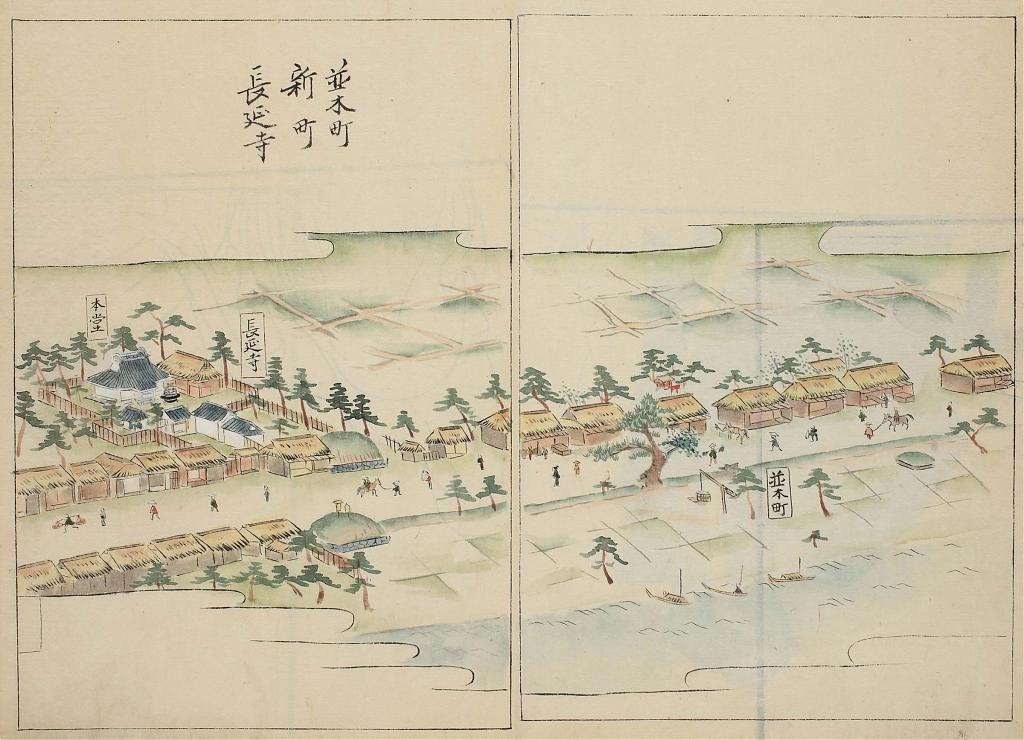 並木町
新町
長延寺
並木町
長延寺
本堂